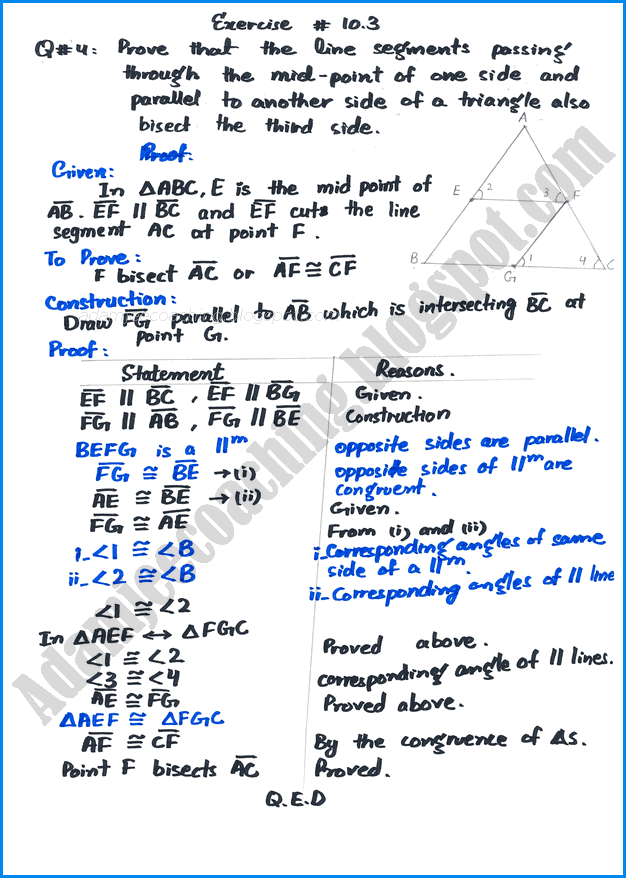 Exercise # 10.3
Q#4: Prove that the line segments passing
through the mid-point of one side and
parallel to another side of a triangle also
bisect the third side.
Proof:
Given:
In ΔABC, E is the mid point of
AB. EF || BC and EF cuts the line
segment AC at point F.
A
E 2 3 F
B G 1 4 C
To Prove:
F bisect AC or AF ≅ CF
Construction:
Draw FG parallel to AB which is intersecting BC at
point G.
Proof:
Statement Reasons.
EF || BC , EF || BG Given.
FG || AB , FG || BE Construction
BEFG is a ||m opposite sides are parallel.
FG ≅ BE → (i) opposite sides of ||m are
congruent.
AE ≅ BE → (ii) Given.
FG ≅ AE From (i) and (ii)
i- ∠1 ≅ ∠B i- Corresponding angles of same
side of a ||m.
ii- ∠2 ≅ ∠B ii- Corresponding angles of || line
∠1 ≅ ∠2
In ΔAEF ↔ ΔFGC
∠1 ≅ ∠2 Proved above.
∠3 ≅ ∠4 corresponding angle of || lines.
AE ≅ FG Proved above.
ΔAEF ≅ ΔFGC
AF ≅ CF By the congruence of Δs.
Point F bisects AC Proved.
Q.E.D
Adamjeecoaching.blogspot.com